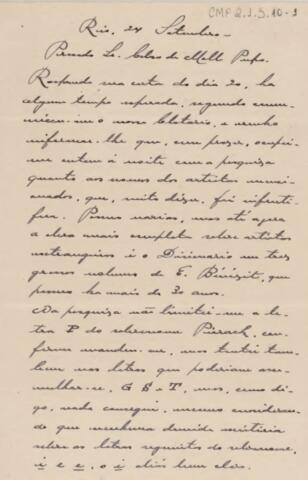 CMP 2.1.5.10-1
Rio, 24 Setembro -
Prezado Sr. Celso de Mello Pupo.
Respondo sua carta do dia 20, ha
algum tempo esperada, segundo
o nosso Clotario, e venho
informar-lhe que, com prazer, occupei-
me ontem á noite com a pesquiza
quanto aos nomes dos artistas mencio-
nados, que, muito digo, foi infruti-
fera. Possuo varios, mas até agora
a obra mais completa sobre artistas
estrangeiros é o Dicionario em tres
grossos volumes de E. Bénézit, que
possuo ha mais de 30 anos.
Na pesquiza não limitei-me a le-
tra P do sobrenome Pierack, con-
forme mandou-me, mas tentei tam-
bem nas letras que poderiam asse-
melhar-se, G S e T, mas, como di-
go, nada consegui, mesmo consideran-
do que nenhuma duvida existiria
sobre as letras seguintes do sobrenome,
i e e, o i aliás bem claro.